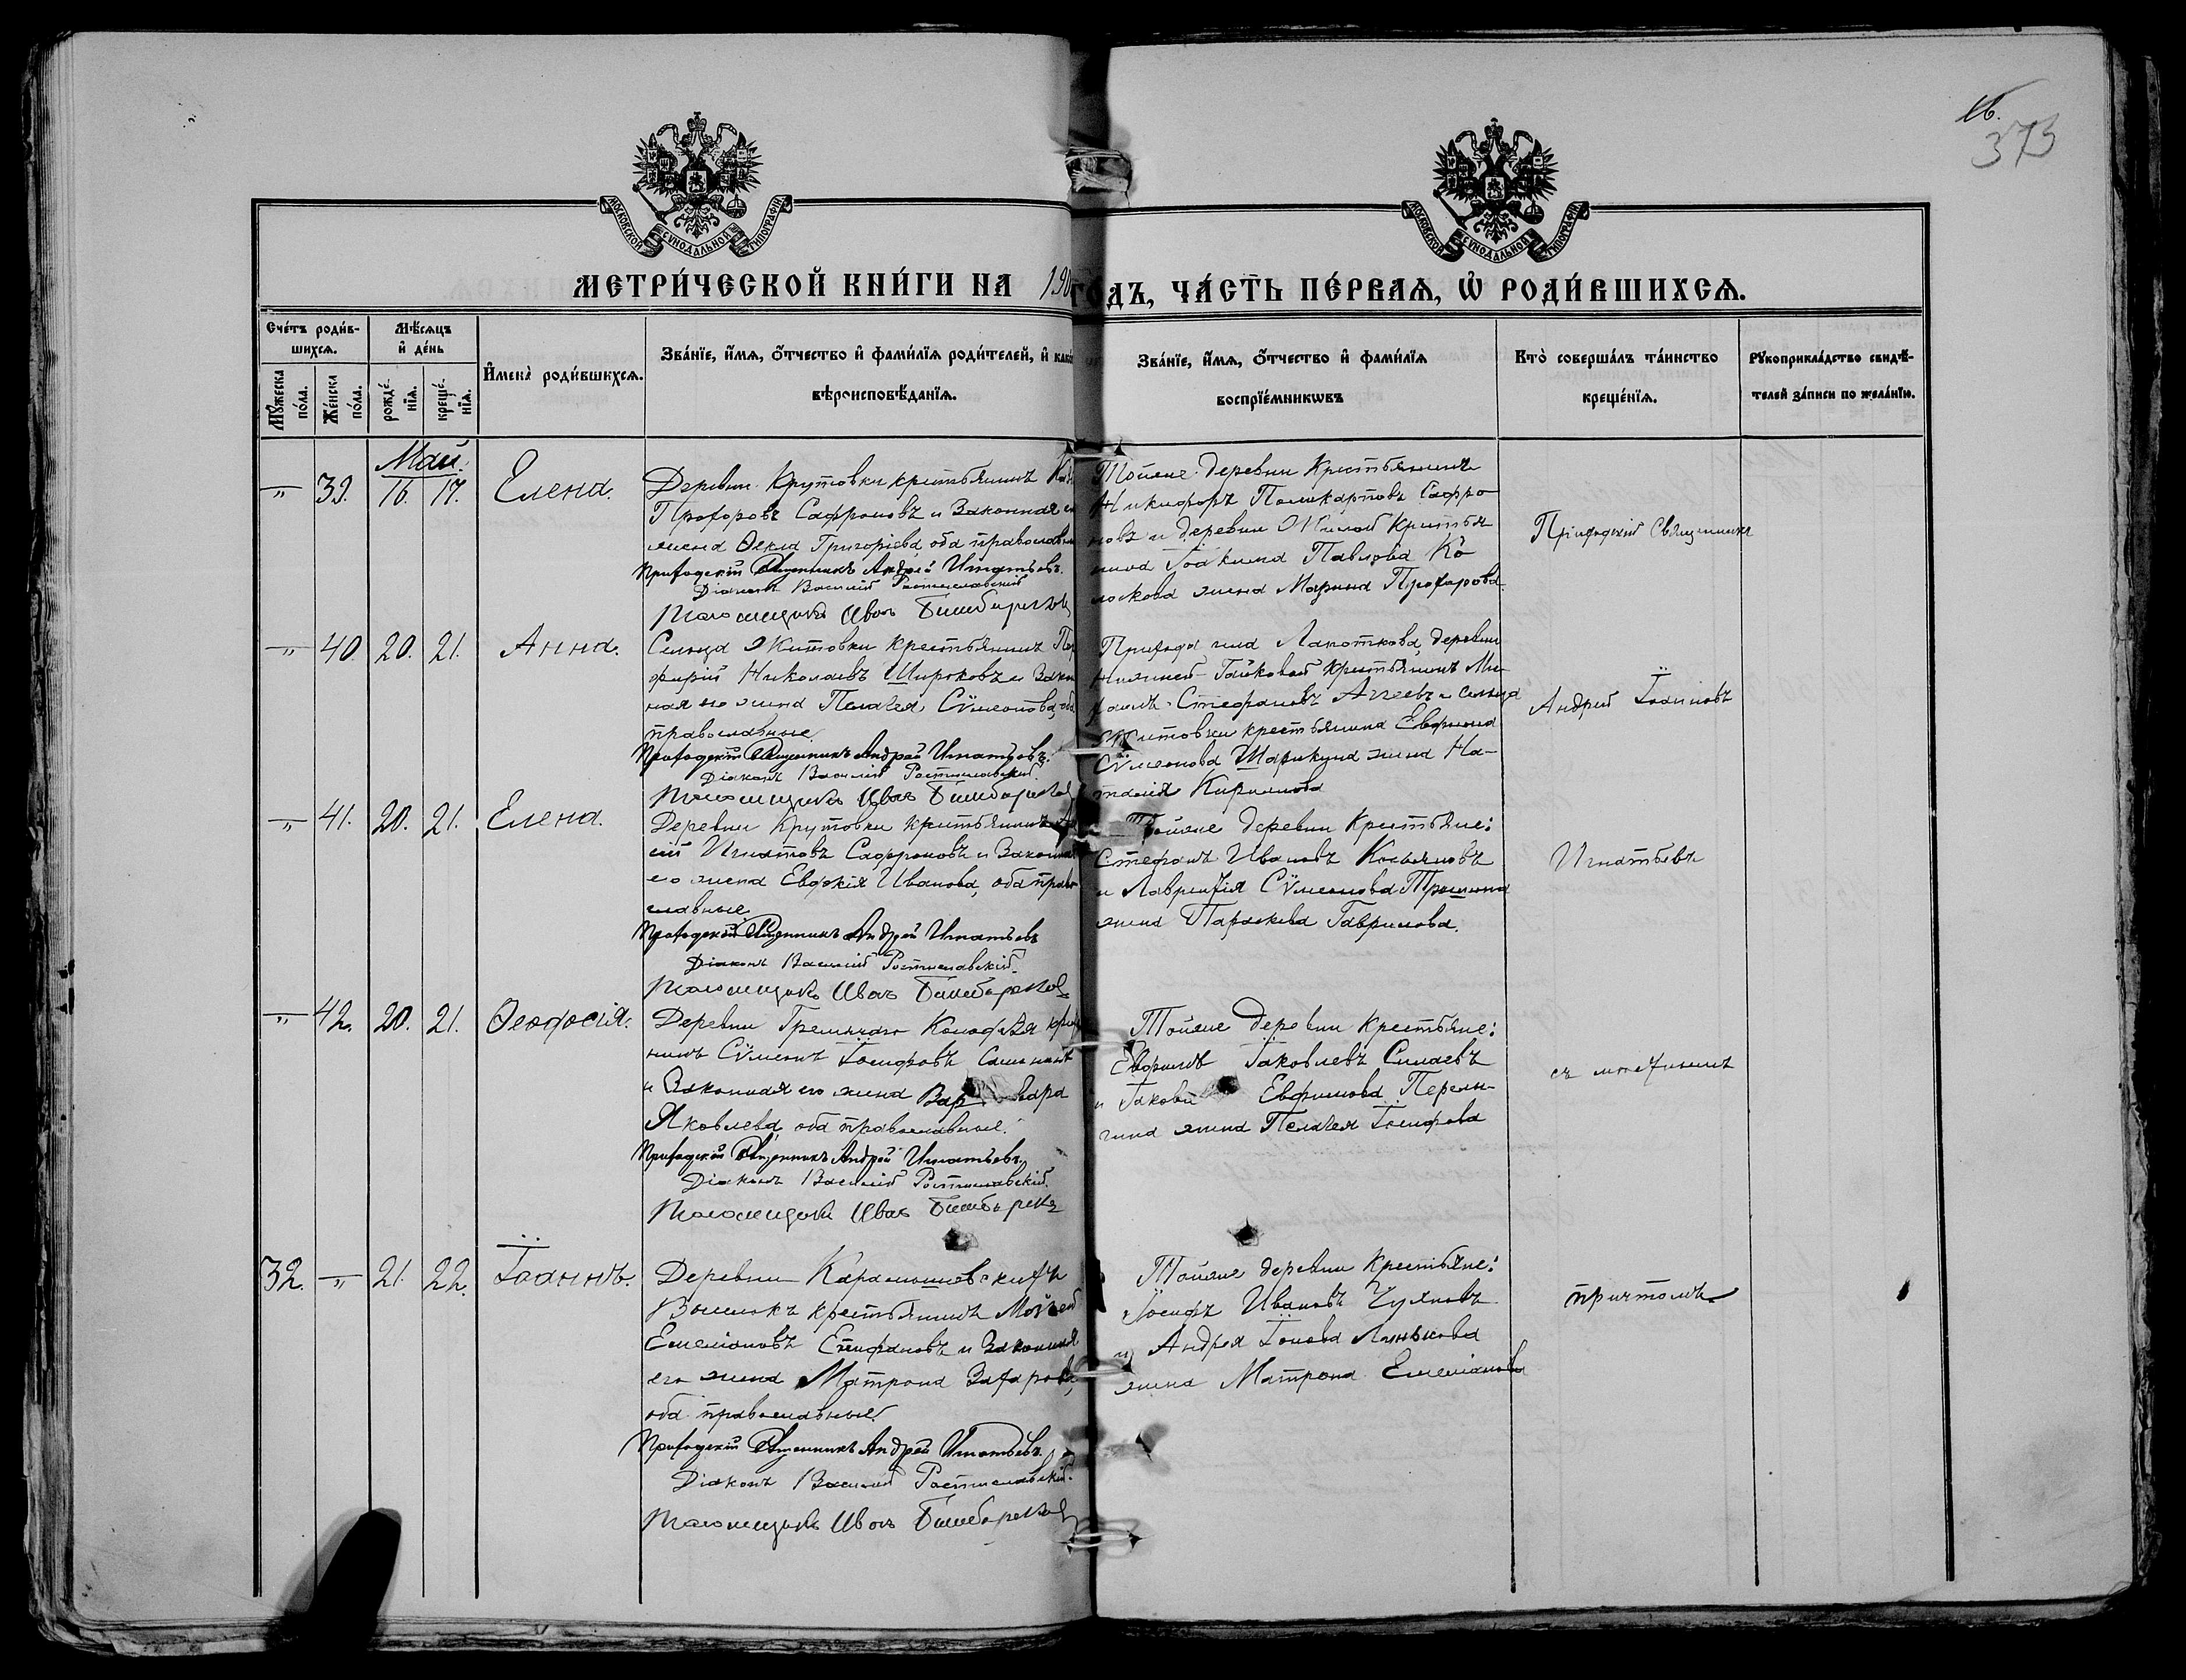 16.
373
МОСКОВСКОЙ СѴНОДАЛЬНОЙ ТИПОГРАФІИ
МОСКОВСКОЙ СѴНОДАЛЬНОЙ ТИПОГРАФІИ
МЕТРИ́ЧЕСКОЙ КНИ́ГИ НА 190 ГО́ДЪ, ЧА́СТЬ ПЕ́РВАѦ, Ѡ҆ РОДИ́ВШИХСѦ.
Сче́тъ роди́в-
шихсѧ.
Мѣ́сѧцъ
и҆ де́нь
И҆мена̀ роди́вшихсѧ.
Зва́нїе, и҆́мѧ, ѻ҆́тчество и҆ фами́лїѧ роди́телей, и҆ како
вѣроисповѣ́данїѧ.
Зва́нїе, и҆́мѧ, ѻ҆́тчество и҆ фами́лїѧ
воспрїе́мникѡвъ
Кто̀ соверша́лъ та́инство
креще́нїѧ.
Рꙋкоприкла́дство свидѣ́-
телей за́писи по жела́нїю.
Мꙋ́жеска по́ла.
Же́нска по́ла.
рожде́нїѧ.
креще́нїѧ.
Май.
—„ 39. 16. 17. Елена.
Деревни Крутовки крестьянинъ
Прохоровъ Сафроновъ и Законная е
жена Ѳекла Григоріева, оба православн
Приходскій Священникъ Андрей Игнатьевъ.
Діаконъ Василій Ростиславскій
Псаломщикъ Иванъ
Тойже деревни Крестьянинъ
Никифоръ Поликарповъ Сафро-
новъ и деревни Жилой Крестья
нина Іоакима Павлова Ко
лоскова жена Марина Прохорова.
Приходскій Священникъ
—„ 40. 20. 21. Анна.
Сельца Житовки крестьянинъ Пор
фирій Николаевъ Широковъ и Закон
ная его жена Пелагея Сѷмеонова, об
православные.
Приходскій Священникъ Андрей Игнатьевъ.
Діаконъ Василій Ростиславскій.
Псаломщикъ Иванъ
Прихода села Лапоткова, деревни
Нижней-Гайковой Крестьянинъ Ми-
хаилъ Стефановъ Агеевъ и сельца
Житовки крестьянина Евфима
Сѷмеонова Шарикина жена На-
талія Кириллова
Андрей Іоанновъ
—„ 41. 20. 21. Елена.
Деревни Крутовки крестьянинъ
сій Игнатовъ Сафроновъ и Законна
его жена Евдокія Иванова, оба право
славные.
Приходскій Священникъ Андрей Игнатьевъ
Діаконъ Василій Ростиславскій.
Псаломщикъ Иванъ
Тойже деревни Крестьяне:
Стефанъ Ивановъ Косьяновъ
и Лаврентія Сѷмеонова Трошина
жена Параскева Гаврилова.
Игнатьевъ
—„ 42. 20. 21. Ѳеодосія.
Деревни Гремячаго Колодезя крестья
нинъ Сѷмеонъ Іосифовъ
и Законная его жена Варвара
Яковлева, оба православные.
Приходскій Священникъ Андрей Игнатьевъ.
Діаконъ Василій Ростиславскій.
Псаломщикъ Иванъ
Тойже деревни Крестьяне:
Евфимъ Іаковлевъ Силаевъ
и Іакова Евфимова Переле-
гина жена Пелагея Іосифова
съ
32. —„ 21. 22. Іоаннъ.
Деревни Карамышевскихъ
Выселокъ крестьянинъ Мойсей
Емеліановъ Епифановъ и Законная
его жена Матрона Захарова,
оба православные.
Приходскій Священникъ Андрей Игнатьевъ.
Діаконъ Василій Ростиславскій.
Псаломщикъ Иванъ
Тойже деревни Крестьяне:
Іосифъ Ивановъ Чуяновъ
и Андрея Іонова Лунькова
жена Матрона Емеліанова
причтомъ.